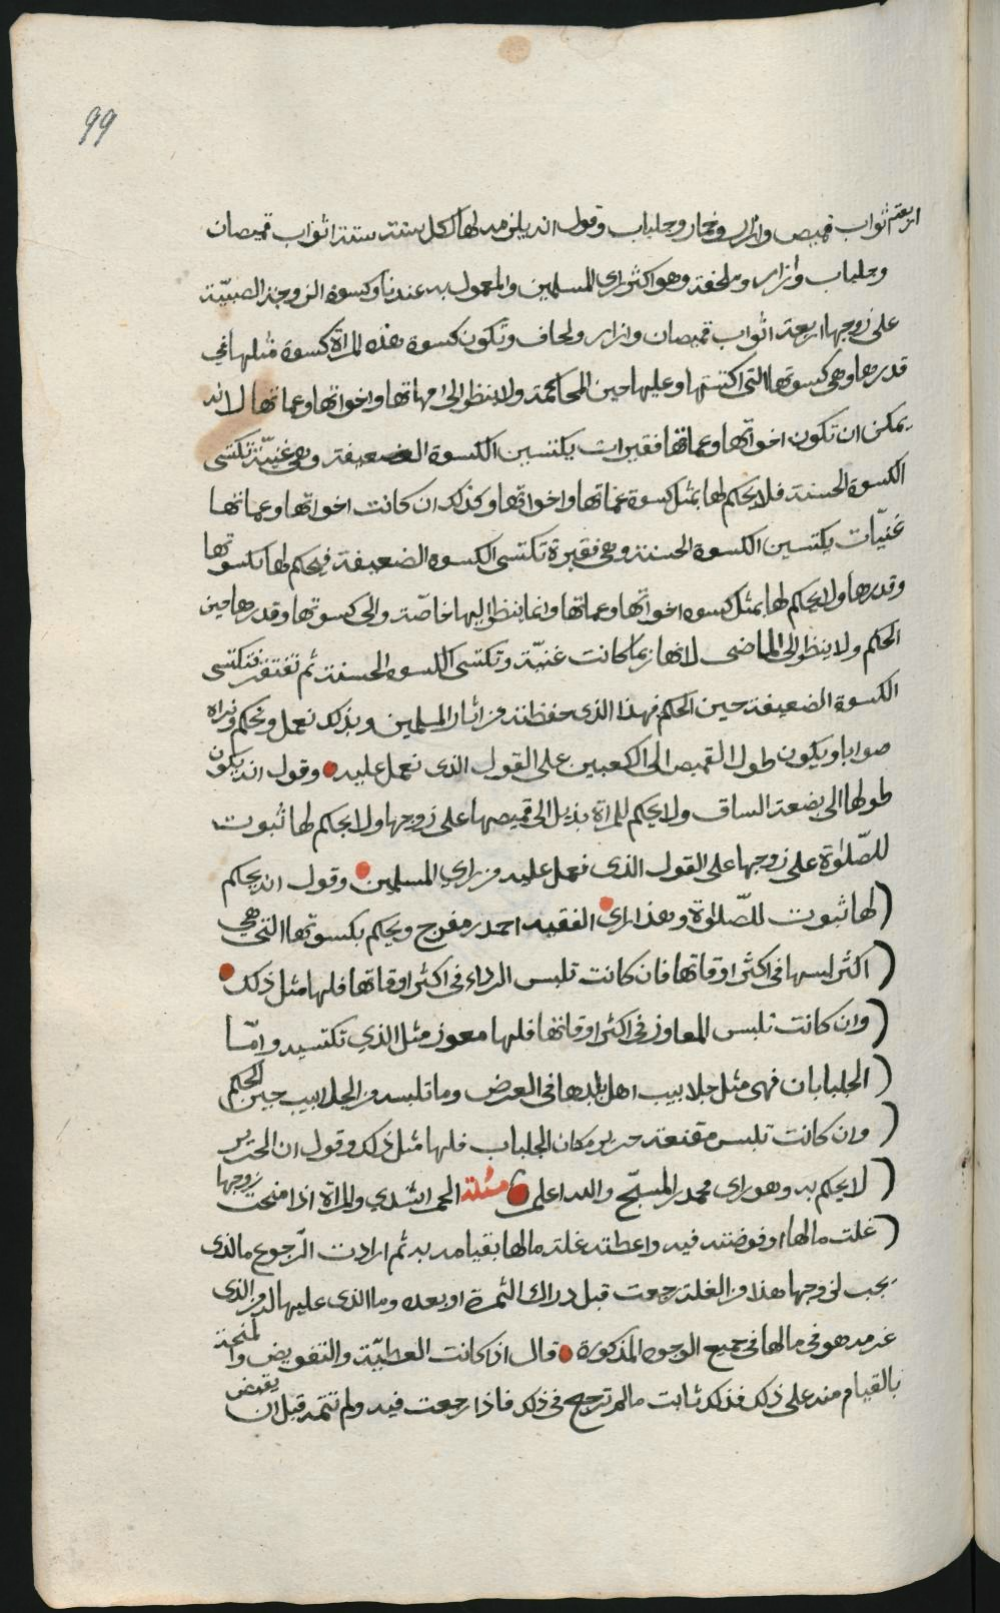 99
اربعة اثواب قميص وازار وخمار وجلباب وقول انه يلزمه لها لكل سنة ستة اثواب قميصان
وجلباب وازار وملحفة وهو اكثر راى المسلمين والمعمول به عندنا وكسوة الزوجة الصبيّة
على زوجها اربعة اثواب قميصان وازار ولحاف وتكون كسوة هذه المراة كسوة مثلها في
قدرها وهى كسوتها التى اكتستها وعليها حين المحاكمة ولا ينظر الى امهاتها واخواتها وعماتها لانه
يمكن ان تكون اخواتها وعماتها فقيرات يكتسين الكسوة الضعيفة وهى غنيّة تكتسى
الكسوة الحسنة فلا يحكم لها بمثل كسوة عماتها واخواتها وكذلك ان كانت اخواتها وعماتها
غنيّات يكتسين الكسوة الحسنة وهى فقيرة تكتسى الكسوة الضعيفة فيحكم لها بكسوتها
وقدرها ولا يحكم لها بمثل كسوة اخواتها وعماتها وانما ينظر اليها خاصّة والى كسوتها وقدرها حين
الحكم ولا ينظر الى الماضى لانها ربما كانت غنيّة وتكتسى الكسوة الحسنة ثم تفتقر فتكتسى
الكسوة الضعيفة حين الحكم فهذا الذى حفظته من اثار المسلمين وبذلك نعمل ونحكم ونراه
صوابا ويكون طول القميص الى الكعبين على القول الذى نعمل عليه وقول انه يكون
طولها الى بضعة الساق ولا يحكم للمراة بذيل الى قميصها على زوجها ولا يحكم لها ثبوت
للصّلوة على زوجها على القول الذى نعمل عليه من راي المسلمين وقول انه يحكم
لها ثبوت للصّلوة وهذا راى الفقيه احمد بن مفرج ويحكم بكسوتها التي هي
اكثر لبسها فى اكثر اوقاتها فان كانت تلبس الرداء فى اكثر اوقاتها فلها مثل ذلك
وان كانت تلبس المعاوز فى اكثر اوقاتها فلها معوز مثل الذي تكتسيه وامّا
الجلبابان فهى مثل جلابيب اهل بلدها فى العرض وما تلبسه من الجلابيب حين الحكم
وان كانت تلبس مقنعة حرير مكان الجلباب فلها مثل ذلك وقول ان الحرير
لا يحكم به وهو راى محمد بن المسبّح والله اعلم مسئلة الحمراشدي والمراة اذا منحت زوجها
غلت مالها او فوضته فيه واعطته غلة مالها بقيامه به ثم ارادت الرّجوع ما لذى
يجب لزوجها هذا من الغلة رجعت قبل دراك الثمرة او بعده وما الذى عليها له من الذى
غرمه هو فى مالها فى جميع الوجوه المذكورة قال اذا كانت العطيّة والتفويض والمنحة
بالقيام منه على ذلك فذلك ثابت ما لم ترجع فى ذلك فاذا رجعت فيه ولم تتمه قبل ان يقبض